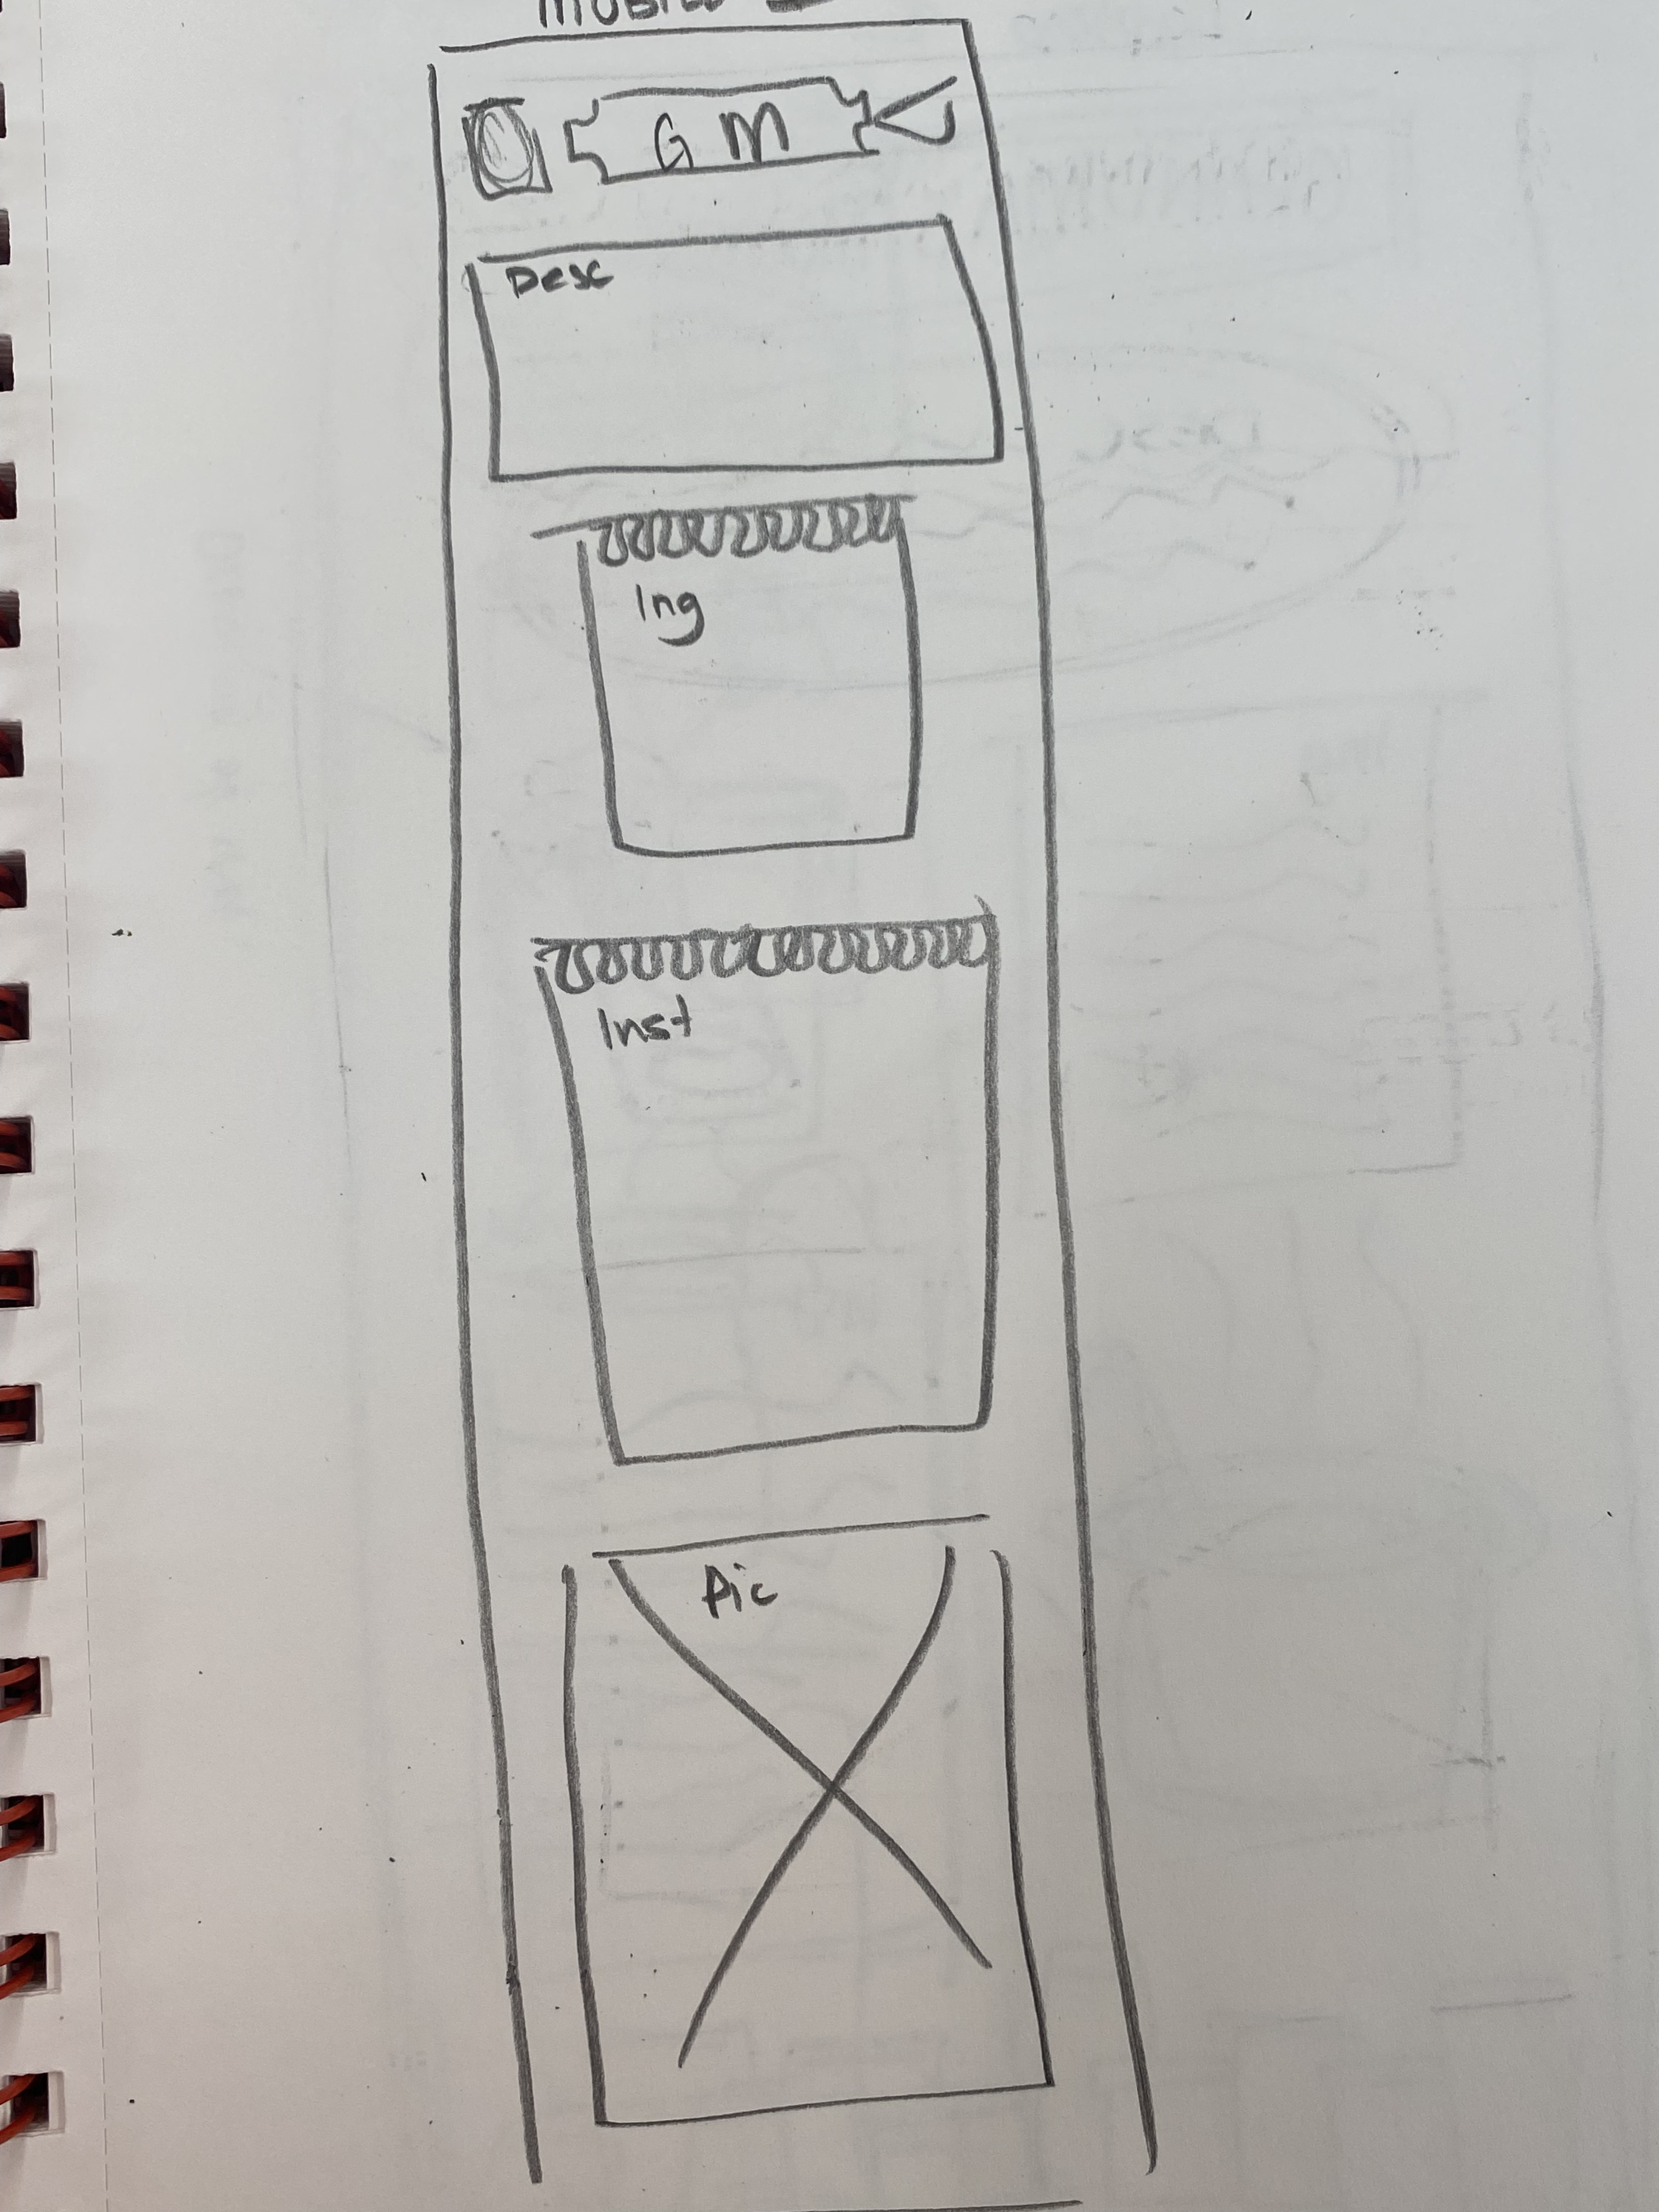 MOBILE
G M
Desc
Ing
Inst
Pic